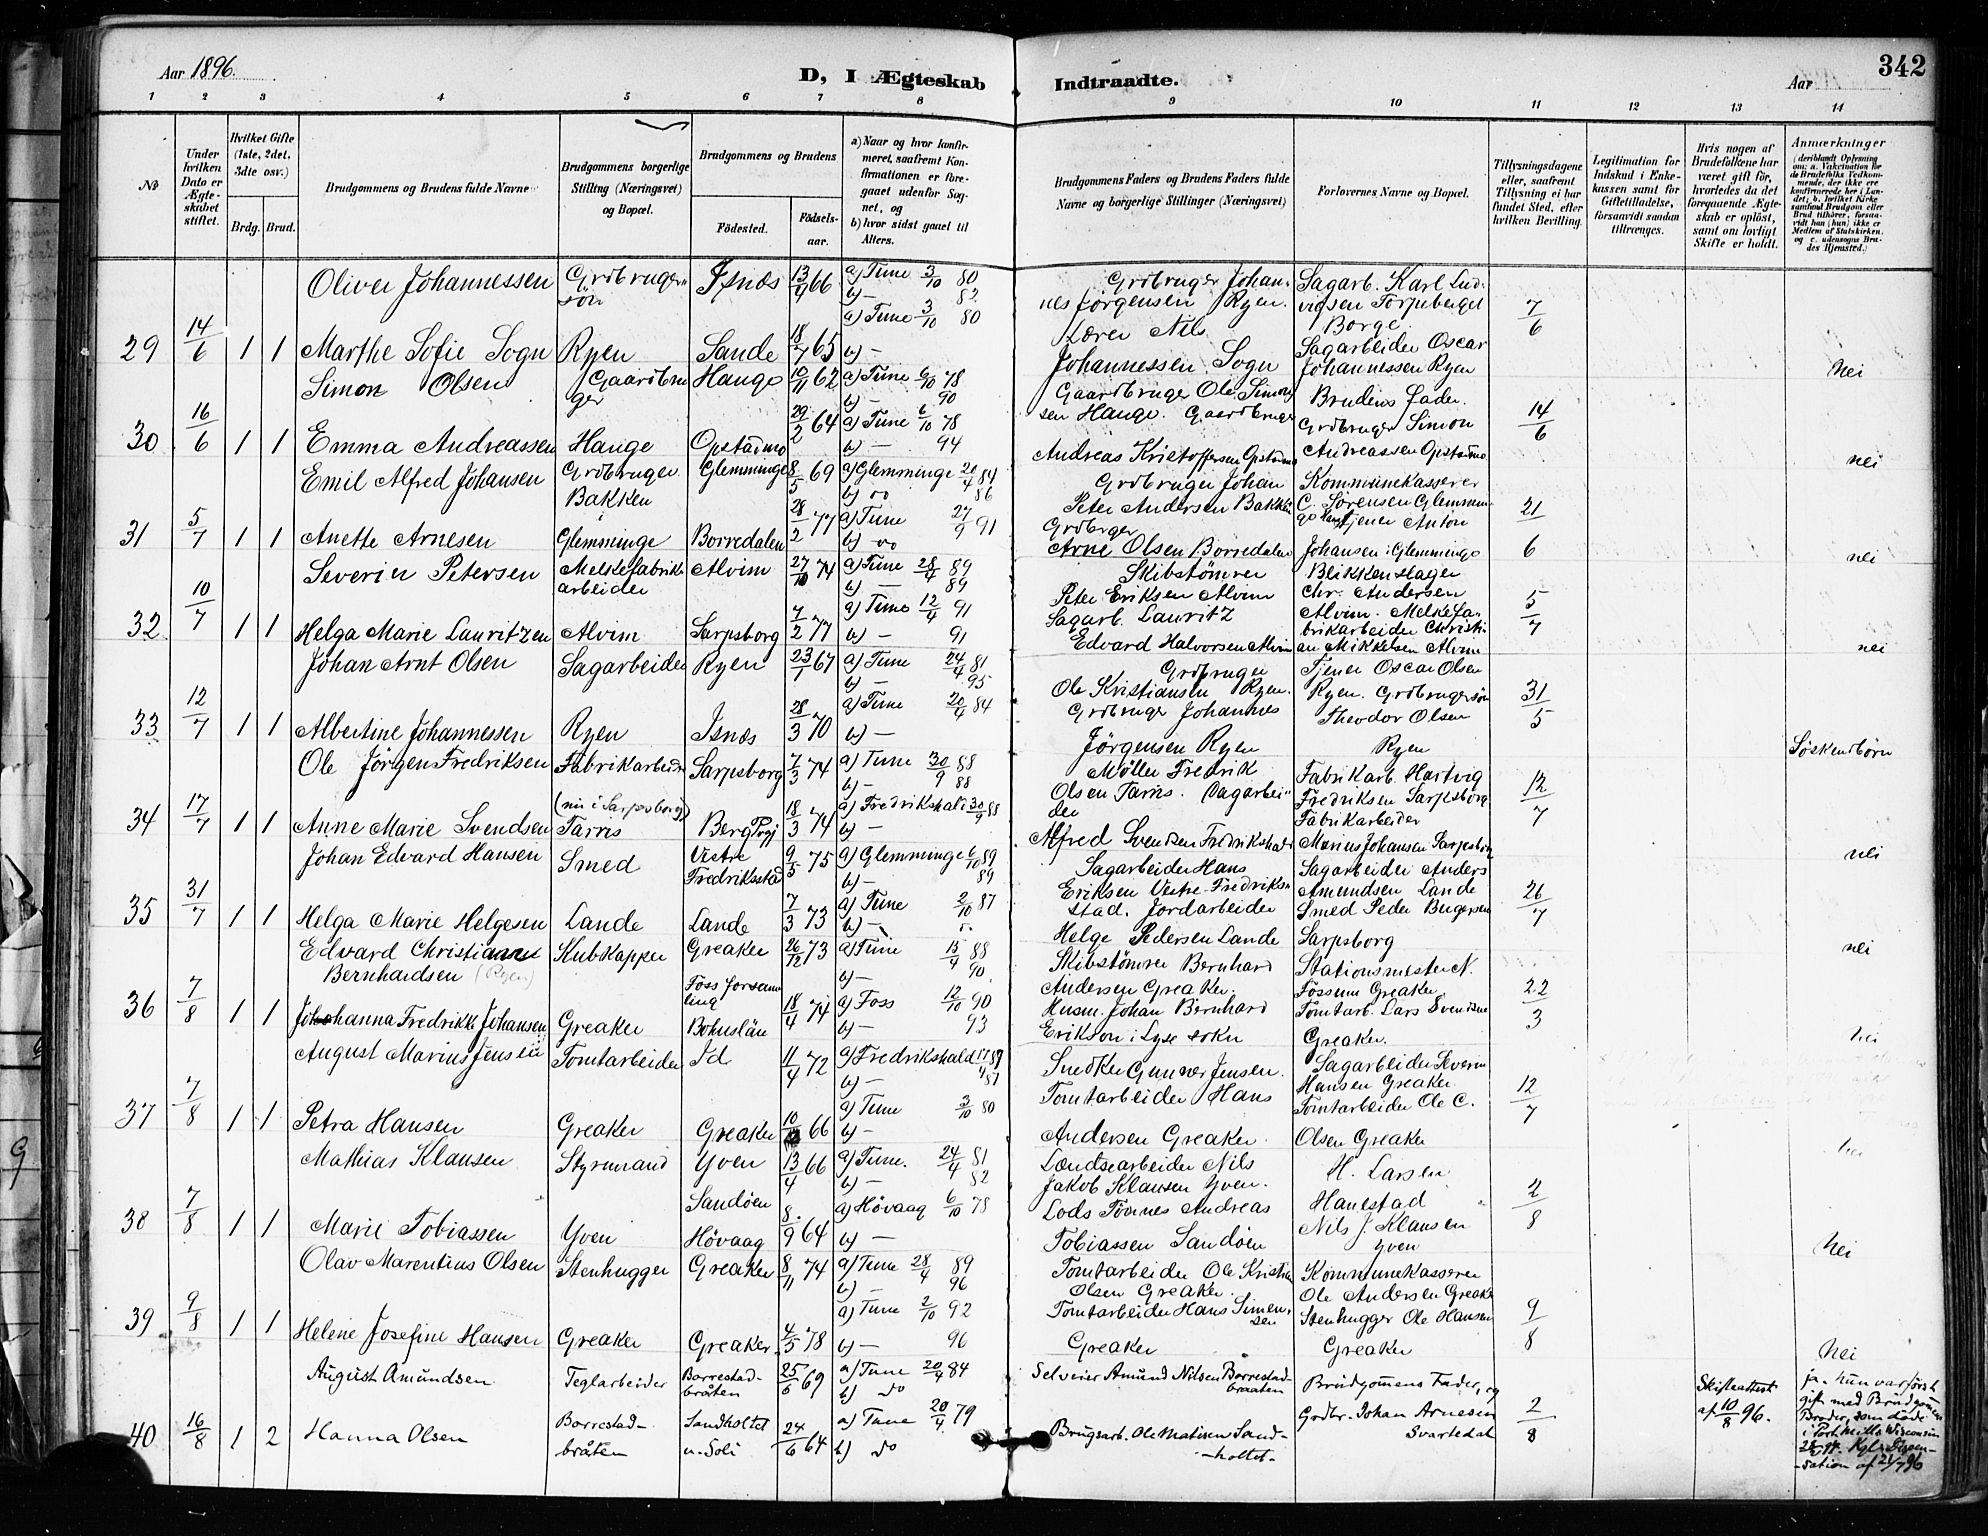 Aar 1896.
D, I Ægteskab Indtraadte.
Aar
342
1 2 3 4 5 6 7 8 9 10 11 12 13 14
No
Under hvilken Dato er Ægteskabet stiftet.
Hvilket Gifte (1ste, 2det, 3die osv.)
Brdg. Brud.
Brudgommens og Brudens fulde Navne
Brudgommens borgerlige Stilling (Næringsvei) og Bopæl.
Brudgommens og Brudens
Födested. Födsels-aar.
a) Naar og hvor konfirmeret, saafremt Konfirmationen er foregaaet udenfor Sognet, og
b) hvor sidst gaaet til Alters.
Brudgommens Faders og Brudens Faders fulde Navne og borgerlige Stillinger (Næringsvei)
Forlovernes Navne og Bopæl.
Tillysningsdagene eller, saafremt Tillysning ei har fundet Sted, efter hvilken Bevilling.
Legitimation for Indskud i Enkekassen samt for Giftetilladelse, forsaavidt saadan tiltrænges.
Hvis nogen af Brudefolkene har været gift för, hvorledes da det foregaaende Ægteskab er oplöst, samt om lovligt Skifte er holdt.
Anmærkninger
(deriblandt Oplysning om: a. Vakcination for de Brudefolks Vedkommende, der ikke ere konfirmerede her i Landet; b. hvilket Kirkesamfund Brudgom eller Brud tilhörer, forsaavidt han (hun) ikke er Medlem af Statskirken, og c. udensogns Brudes Hjemsted.)
Oliver Johannessen Grdbruger- søn Isnæs 13/4 66 a) Tune 3/10 80 b) — 82 Grdbruger Johannes Jörgensen Ryen. Sagarb. Karl Ludvigsen Torpeberget Borge
29 14/6 1 1 Marthe Sofie Sogn Ryen Sande 18/7 65 a) Tune 3/10 80 b) — Lærer Nils Johannessen Sogn Sagarbeider Oscar Johannessen Ryen 7/6 nei
Simon Olsen Gaardbruger Hauge 10/11 62 a) Tune 6/10 78 b) — 90 Gaardbruger Ole Simonsen Hauge. Brudens Fader.
30 16/6 1 1 Emma Andreassen Hauge Opstadmo 29/2 64 a) Tune 6/10 78 b) — 94 Gaardbruger Andreas Kristoffersen Opstadmo Grdbruger Simon Andreassen Opstadmo 14/6 nei
Emil Alfred Johansen Grdbruger Bakken Glemminge 8/5 69 a) Glemminge 20/4 84 b) do 86 Grdbruger Johan Peter Andersen Bakken Kommunekasserer C. Sørensen Glemminge
31 5/7 1 1 Anette Arnesen Glemminge Borredalen 28/2 77 a) Tune 27/9 91 b) do Grdbrger Arne Olsen Borredalen tjener Anton Johansen i Glemminge 21/6 nei
Severin Petersen Melkefabrikarbeider Alvim 27/10 74 a) Tune 28/4 89 b) — 89 Skibstömrer Peter Eriksen Alvim Blikkenslager Chr. Andersen Alvim.
32 10/7 1 1 Helga Marie Lauritzen Alvim Sarpsborg 7/2 77 a) Tune 12/4 91 b) — 91 Sagarb. Lauritz Edvard Halvorsen Alvim Melkefabrikarbeider Christian Mikkelsen Alvim 5/7 nei
Johan Arnt Olsen Sagarbeider Ryen 23/1 67 a) Tune 24/4 81 b) — 95 Grdbruger Ole Kristiansen Ryen. Tjener Oscar Olsen Ryen.
33 12/7 1 1 Albertine Johannessen Ryen Isnæs 28/3 70 a) Tune 20/4 84 b) — Grdbruger Johannes Jörgensen Ryen Grdbrugersøn Theodor Olsen Ryen 31/5 Søskendbörn
Ole Jörgen Fredriksen Fabrikarbeider (nu i Sarpsborg) Sarpsborg 7/3 74 a) Tune 30/9 88 b) — 88 Möller Fredrik Olsen Tarris. Fabrikarb. Hartvig Fredriksen Sarpsborg
34 17/7 1 1 Anne Marie Svendsen Tarris Berg Prgj 18/3 74 a) Fredrikshald 30/9 88 b) — Sagarbeider Alfred Svendsen Fredrikshald Fabrikarbeider Marius Johansen Sarpsborg 12/7 nei
Johan Edvard Hansen Smed Vestre Fredriksstad 9/5 75 a) Glemminge 6/10 89 b) — 89 Sagarbeider Hans Eriksen Vestre Fredriksstad. Sagarbeider Anders Amundsen Lande
35 31/7 1 1 Helga Marie Helgesen Lande Lande 7/3 73 a) Tune 2/10 87 b) — Jordarbeider Helge Pedersen Lande Smed Peder Birgersen Sarpsborg 26/7 nei
Edvard Christian Bernhardsen (Ryen) Kubskapper Greaker 26/12 73 a) Tune 15/4 88 b) — 90 Skibstömrer Bernhard Andersen Greaker. Stationsmester N. Fossum Greaker
36 7/8 1 1 Johanna Fredrikke Johansen Greaker Foss forsamling Bohuslän 18/4 74 a) Foss 12/10 90 b) — 93 Husm. Johan Bernhard Erikson i Lyse sokn Tomtarb. Lars Svendsen Greaker. 22/3 nei
August Marius Jensen Tomtarbeider Id 11/4 72 a) Fredrikshald 17/4 87 b) — 87 Snedker Gunner Jensen. Sagarbeider Severin Hansen Greaker
37 7/8 1 1 Petra Hansen Greaker Greaker 10/ 66 a) Tune 3/10 80 b) — Tomtarbeider Hans Andersen Greaker. Tomtarbeider Ole C. Olsen Greaker 12/7 nei
Mathias Klausen Styrmand Yven 13/4 66 a) Tune. 24/4 81 b) — 82 Lændsearbeider Nils Jakob Klausen Yven. H. Larsen Hanestad
38 7/8 1 1 Marie Tobiassen Yven Sandöen Høvaag 8/9 64 a) Høvaag 6/10 78 b) — Lods Tönnes Andreas Tobiassen Sandöen Nils J. Klausen Yven 2/8 Nei
Olav Marentius Olsen Stenhugger Greaker 8/11 74 a) Tune 28/4 89 b) — 96 Tomtarbeider Ole Kristian Olsen Greaker. Kommunekasserer Ole Andersen Greaker
39 9/8 1 1 Helene Josefine Hansen Greaker Greaker 4/5 78 a) Tune 2/10 92 b) — 96 Tomtarbeider Hans Simensen Greaker Stenhugger Ole Hansen Greaker 9/8 Nei
August Amundsen Teglarbeider Borrestadbråten 25/5 69 a) Tune 20/4 84 b) do Selveier Amund Nilsen Borrestadbraaten Brudgomens Fader, og
40 16/8 1 2 Hanna Olsen Borrestadbråten Sandholtet u. Soli 24/6 64 a) Tune 20/4 79 b) do Brugsarb. Ole Matisen Sandholtet Grdbr. Johan Arnesen Svartedal 2/8 Skifteattest af 10/8 96. ja. hun var först gift med Brudgomens Broder, som döde i Wisconsin Kgl. Dispensation af 21/7 96